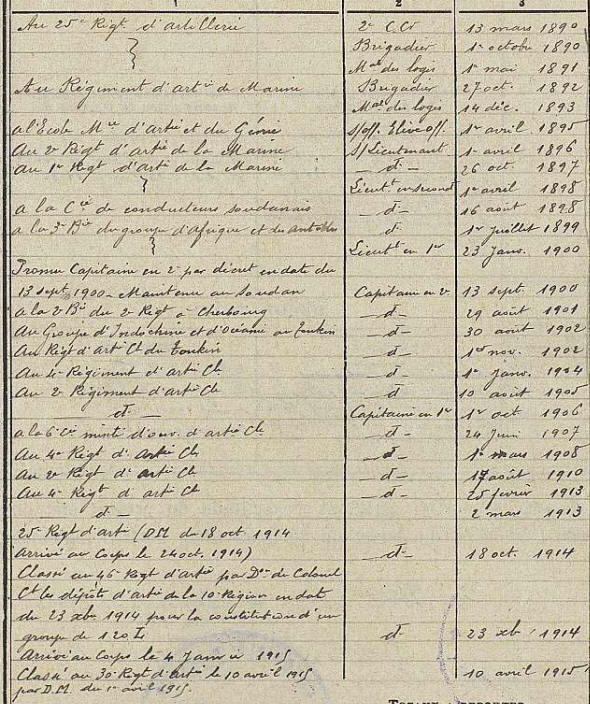 1 2 3
Au 25e Regt. d'artillerie 2e C.Cr 13 mars 1890
Brigadier 1er octobre 1890
Mal des logis 1er mai 1891
Au Régiment d'artie de Marine Brigadier 27 oct. 1892
Mal des logis 14 déc. 1893
a l'École Mre d'artie et du Génie S/off. Elève off. 1er avril 1895
Au 2e Regt d'artie de la Marine S/Lieutenant 1er avril 1896
Au 1er Regt d'artie de la Marine _d°_ 26 oct. 1897
Lieut. en second 1er avril 1898
a la Cie de conducteurs soudanais _d°_ 16 août 1898
a la 3e Bie du groupe d'Afrique et des Antilles _d°_ 1er juillet 1899
Lieutt en 1er 23 janv. 1900
Promu Capitaine en 2e par décret en date du
13 sept. 1900 - Maintenu au Soudan Capitaine en 2e 13 sept. 1900
a la 2e Bie du 2e Regt à Cherbourg _d°_ 29 août 1901
Au Groupe d'Indochine et d'océanie au Tonkin _d°_ 30 août 1902
Au Regt d'artie Cle du Tonkin _d°_ 1er nov. 1902
Au 4e Régiment d'artie Cle _d°_ 1er janv. 1904
Au 2e Régiment d'artie Cle _d°_ 10 août 1905
_d°_ Capitaine en 1er 1er oct 1906
a la 6e Cie mixte d'ouv. d'artie Cle _d°_ 24 juin 1907
Au 4e Regt d'artie Cle _d°_ 1er mars 1908
Au 2e Regt d'artie Cle _d°_ 17 août 1910
Au 4e Regt d'artie Cle _d°_ 25 février 1913
_d°_ 2 mars 1913
25e Regt d'artie (DM. du 18 oct. 1914
Arrivé au Corps le 24 oct. 1914) _d°_ 18 oct. 1914
Classé au 46e Regt d'artie par Don du Colonel
Ct les dépôts d'artie de la 10e Région en date
du 23 xbre 1914 pour la constitution d'un
groupe de 120 L _d°_ 23 xbre 1914
Arrivé au Corps le 4 Janvier 1915
Classé au 30e Regt d'artie le 10 avril 1915 10 avril 1915
par D.M. du 1er avril 1915.